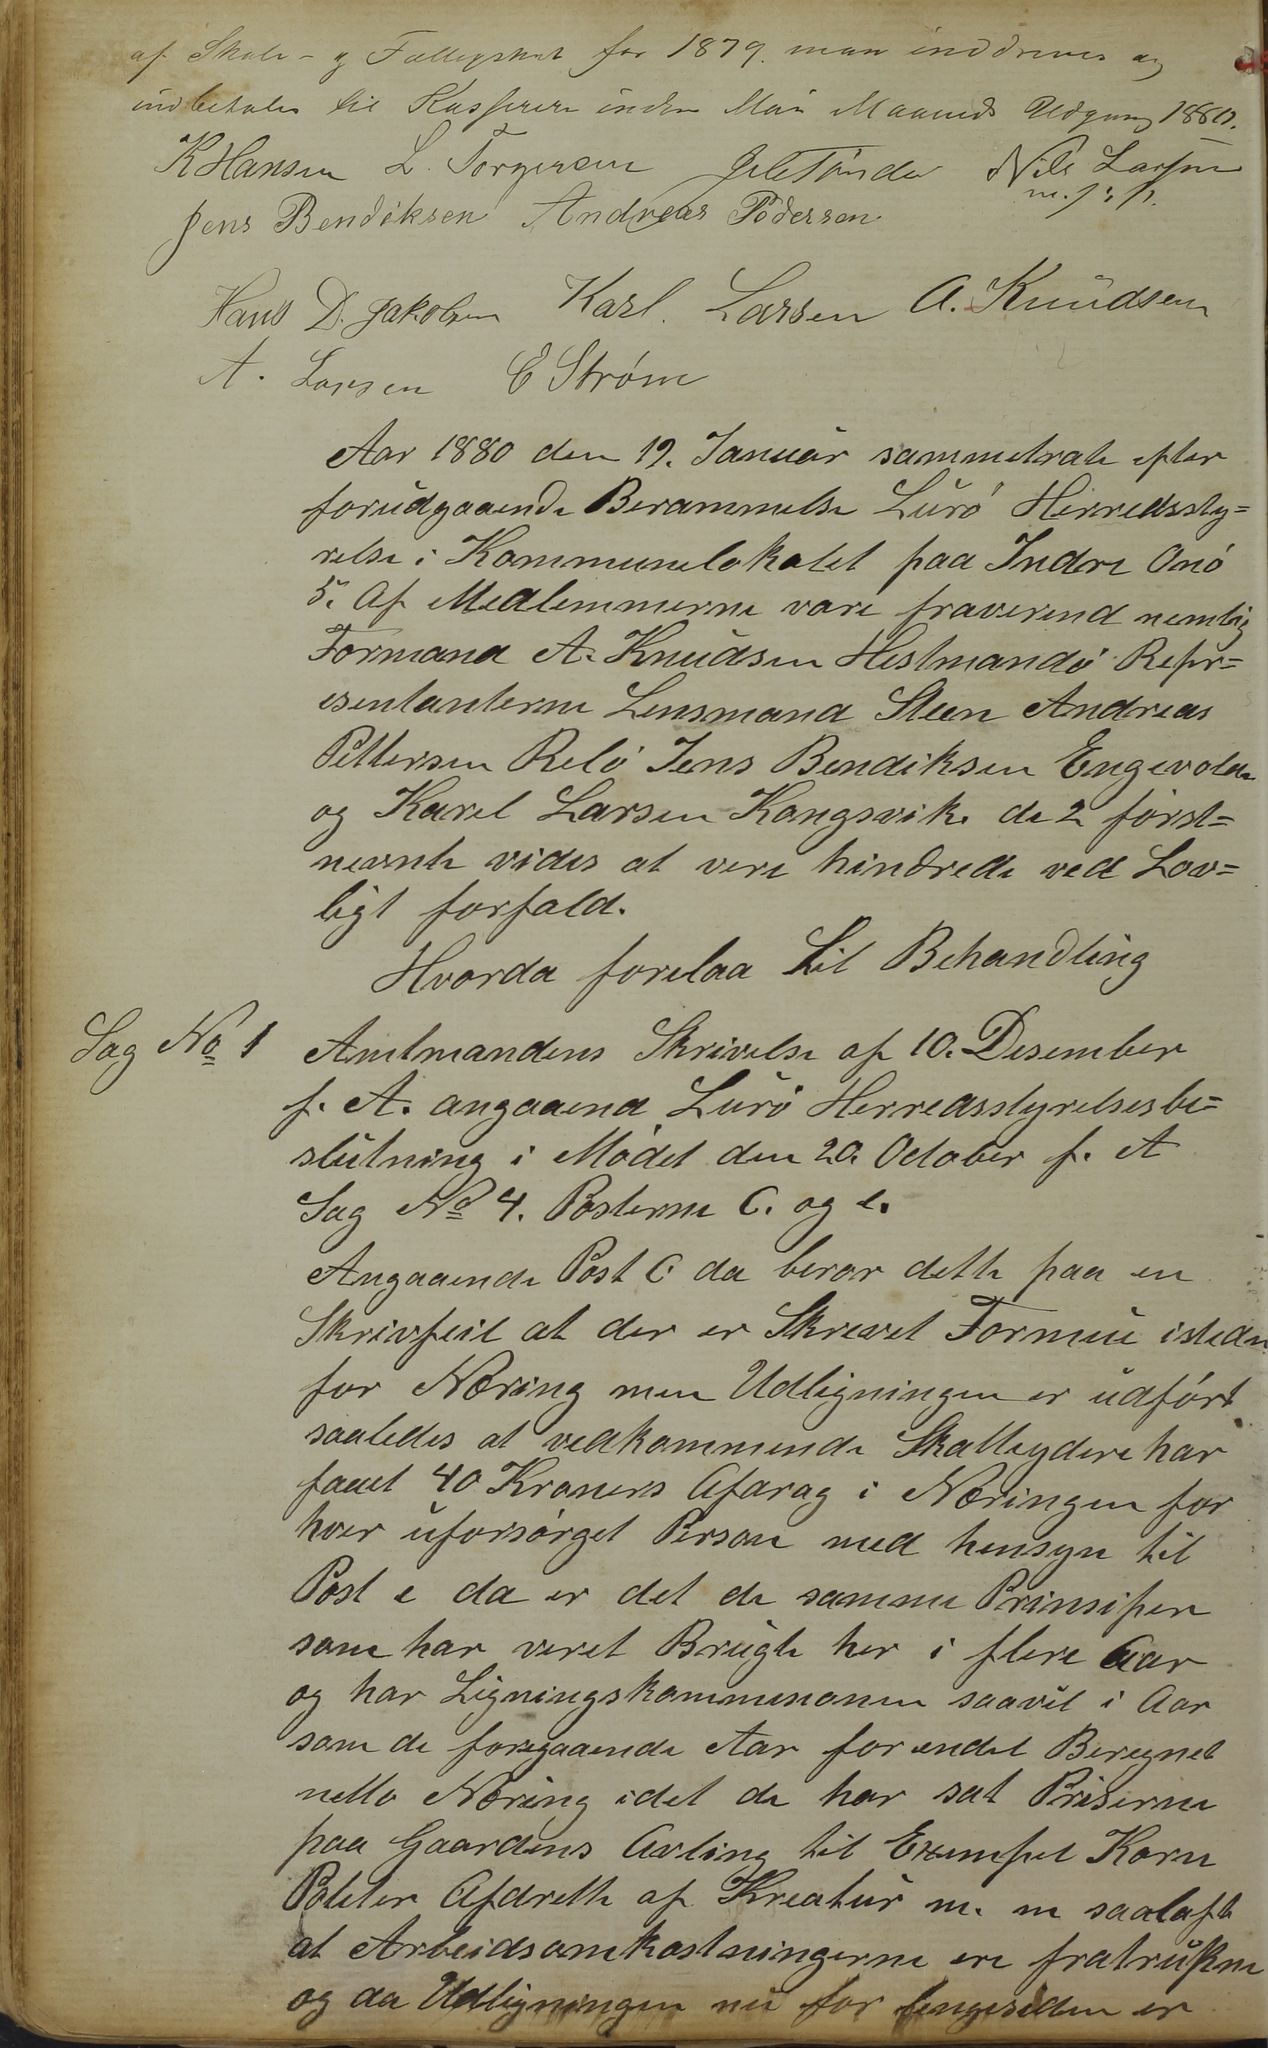 af Skole- og Fællesskat for 1879. maa inddrives og
indbetales til Kasserer inden Mai Maaneds Udgang 1880.
K Hansen L. Torgersen Nils Larsen
m. f. p.
Jens Bendiksen Andreas Pedersen
Hans D. Jakobsen Karl. Larsen A. Knudsen
A. Larsen E Strøm
Aar 1880 den 19. Januar sammetrate efter
forudgaaende Berammelse Lurø Herredssty=
relse i Kommunelokalet paa Indre Onø
5. Af Medlemmerne vare fraverend nemlig
Formand A. Knudsen Hestmandø Repr=
esentanterne Lensmand Steen Andreas
Pettersen Relø Jens Bendiksen Engevolden
og Karel Larsen Kongsvik. de 2 først=
nevnte vides at vere hindrede ved Lov=
ligt forfald.
Hvorda forelaa til Behandling
Sag No 1 Amtmandens Skrivelse af 10. Desember
f. A. angaaend Lurø Herredsstyrelsesbe=
slutning i Mødet den 20. October f. A
Sag No 4. Posterne C. og e.
Angaaende Post C da beror dette paa en
Skrivfeil at der er Skrevet Formue isteden
for Næring men Udligningen er udført
saaledes at vedkommende Skatteydere har
faaet 40 Kroners Afdrag i Næringen for
hver uforsørget Person med hensyn til
Post e da er det de samme Prinsiper
som har veret Brugte her i flere Aar
og har Ligningskommisionen saavel i Aar
som de foregaaende Aar for endel Beregnet
netto Næring idet de har sat Priserne
paa Gaardens Avling til Exempel Korn
Poteter Afdrette af Kreatur m. m saalaft
at Arbeidsomkostningerne ere fratrukne
og da Udligningen nu for lengesiden er